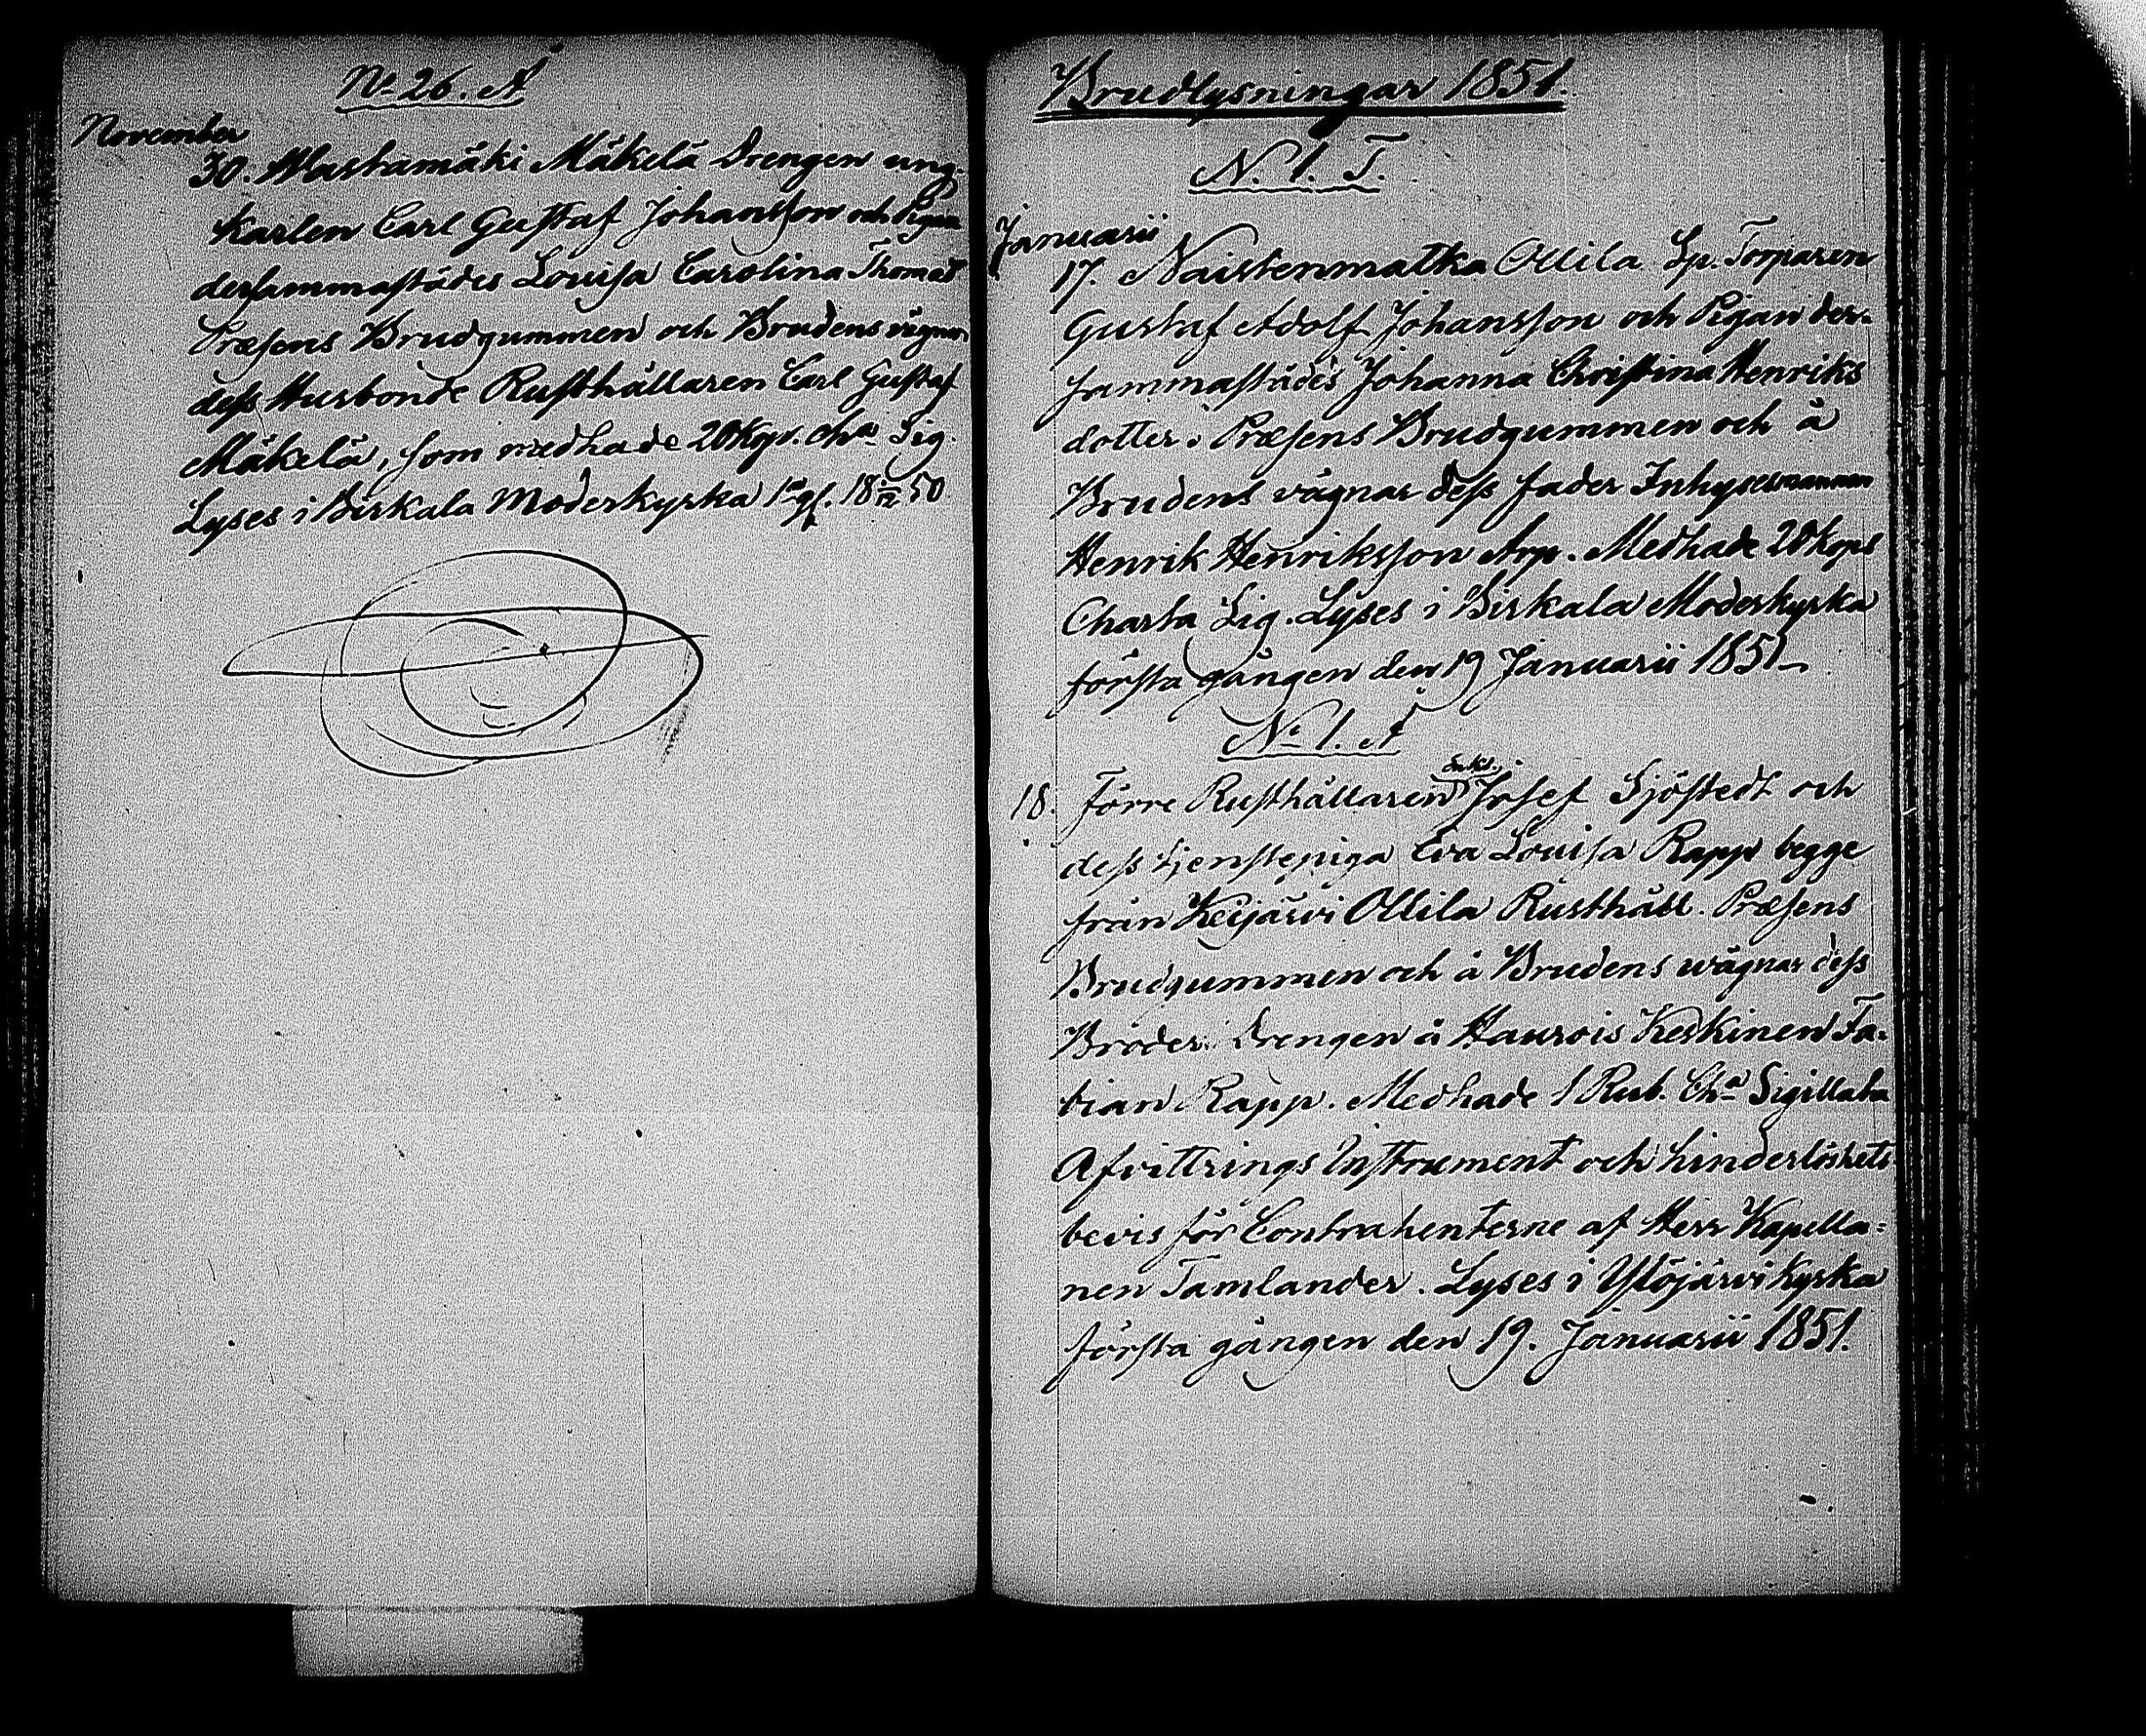 No 26. A
November
30. Mastamäki Mäkelä Drengen ung-
karlen Carl Gustaf Johansson och Pigan
dersammastädes Lovisa Carolina Thomasd
Præsens Brudgummen och Brudens vägnar
dess Husbonde Rusthållaren Carl Gustaf
Mäkelä, som medhade 20 Kop. cha Sig.
Lyses i Birkala Moderkyrka 1sta gg. 18 1/12 50
Brudlysningar 1851.
N. 1. T.
Januarii
17. Naistenmatka Ollila Sp. Torparen
Gustaf Adolf Johansson och Pigan der-
sammastädes Johanna Christina Henriks
dotter. Præsens Brudgummen och å
Brudens vägnar dess fader Inhysesmannen
Henrik Henriksson Arp. Medhade 20 Kops
Charta Sig. Lyses i Birkala Moderkyrka
första gången den 19 Januarii 1851
No 1. A
18. Förre Rusthållaren Enkl. Josef Sjöstedt och
dess tjenstepiga Eva Lovisa Rapp begge
från Keijärvi Ollila Rusthåll. Præsens
Brudgummen och å Brudens wägnar dess
Broder Drengen å Haurois Keskinen Fa-
bian Rapp. Medhade 1 Rub. Cha Sigillata
Afvittrings Instrument och hinderlöshets
bevis för Contrahenterne af Herr Kapella-
nen Tamlander. Lyses i Ylöjärvi Kyrka
första gången den 19. Januarii 1851.